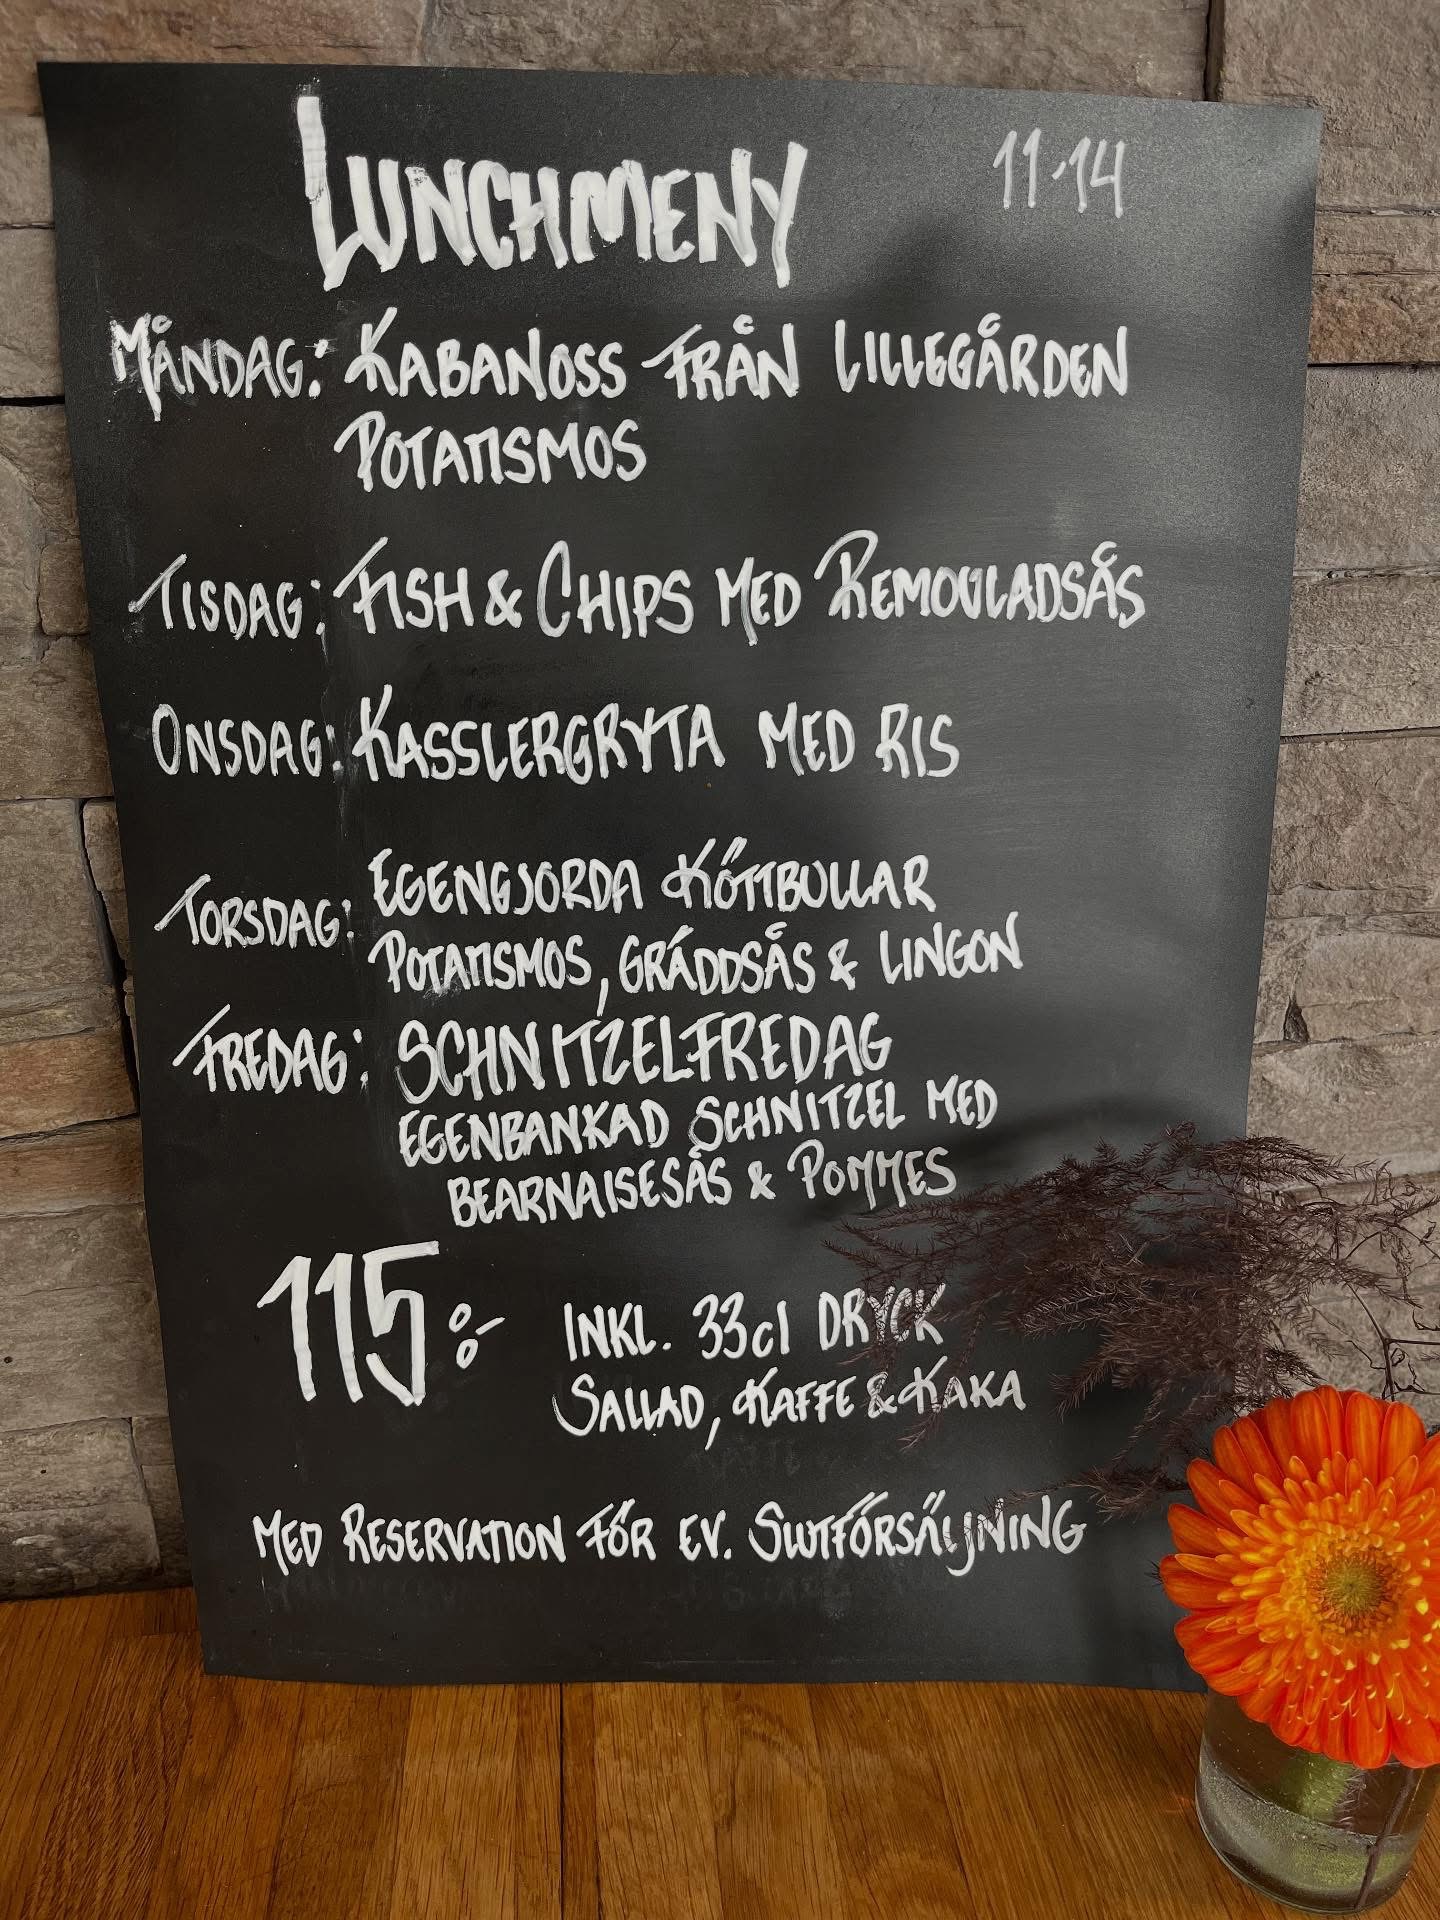 LUNCHMENY 11-14
MÅNDAG: KABANOSS FRÅN LILLEGÅRDEN
POTATISMOS
TISDAG: FISH & CHIPS MED REMOULADSÅS
ONSDAG: KASSLERGRYTA MED RIS
TORSDAG: EGENGJORDA KÖTTBULLAR
POTATISMOS, GRÄDDSÅS & LINGON
FREDAG: SCHNITZELFREDAG
EGENBANKAD SCHNITZEL MED
BEARNAISESÅS & POMMES
115:- INKL. 33cl DRYCK
SALLAD, KAFFE & KAKA
MED RESERVATION FÖR EV. SLUTFÖRSÄLJNING